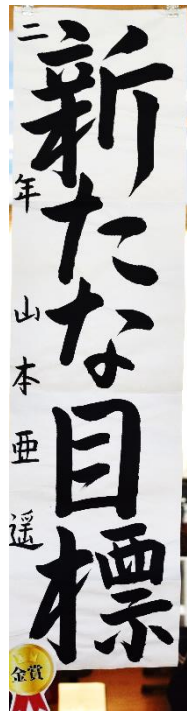 新たな目標
二年 山本亜遥
金賞